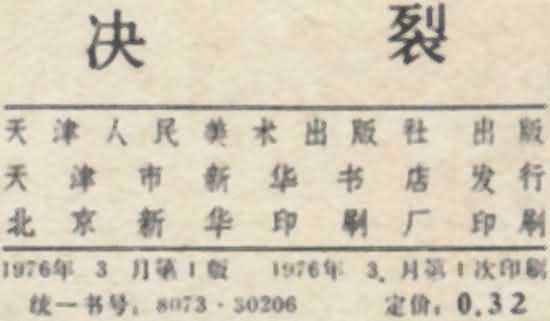 决裂
天津人民美术出版社出版
天津市新华书店发行
北京新华印刷厂印刷
1976年3月第1版 1976年3月第1次印刷
统一书号：8073·50206 定价：0.32